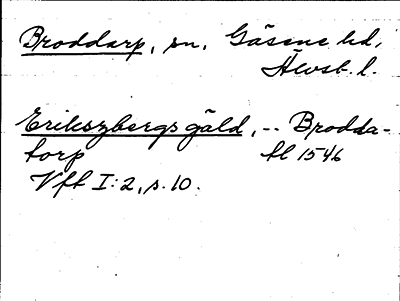 Broddarp, sn, Gäsene hd,
Älvsb. l.
Erikszbergs gäld, -- Brodda-
torp fl 1546
Vft I:2, s. 10.